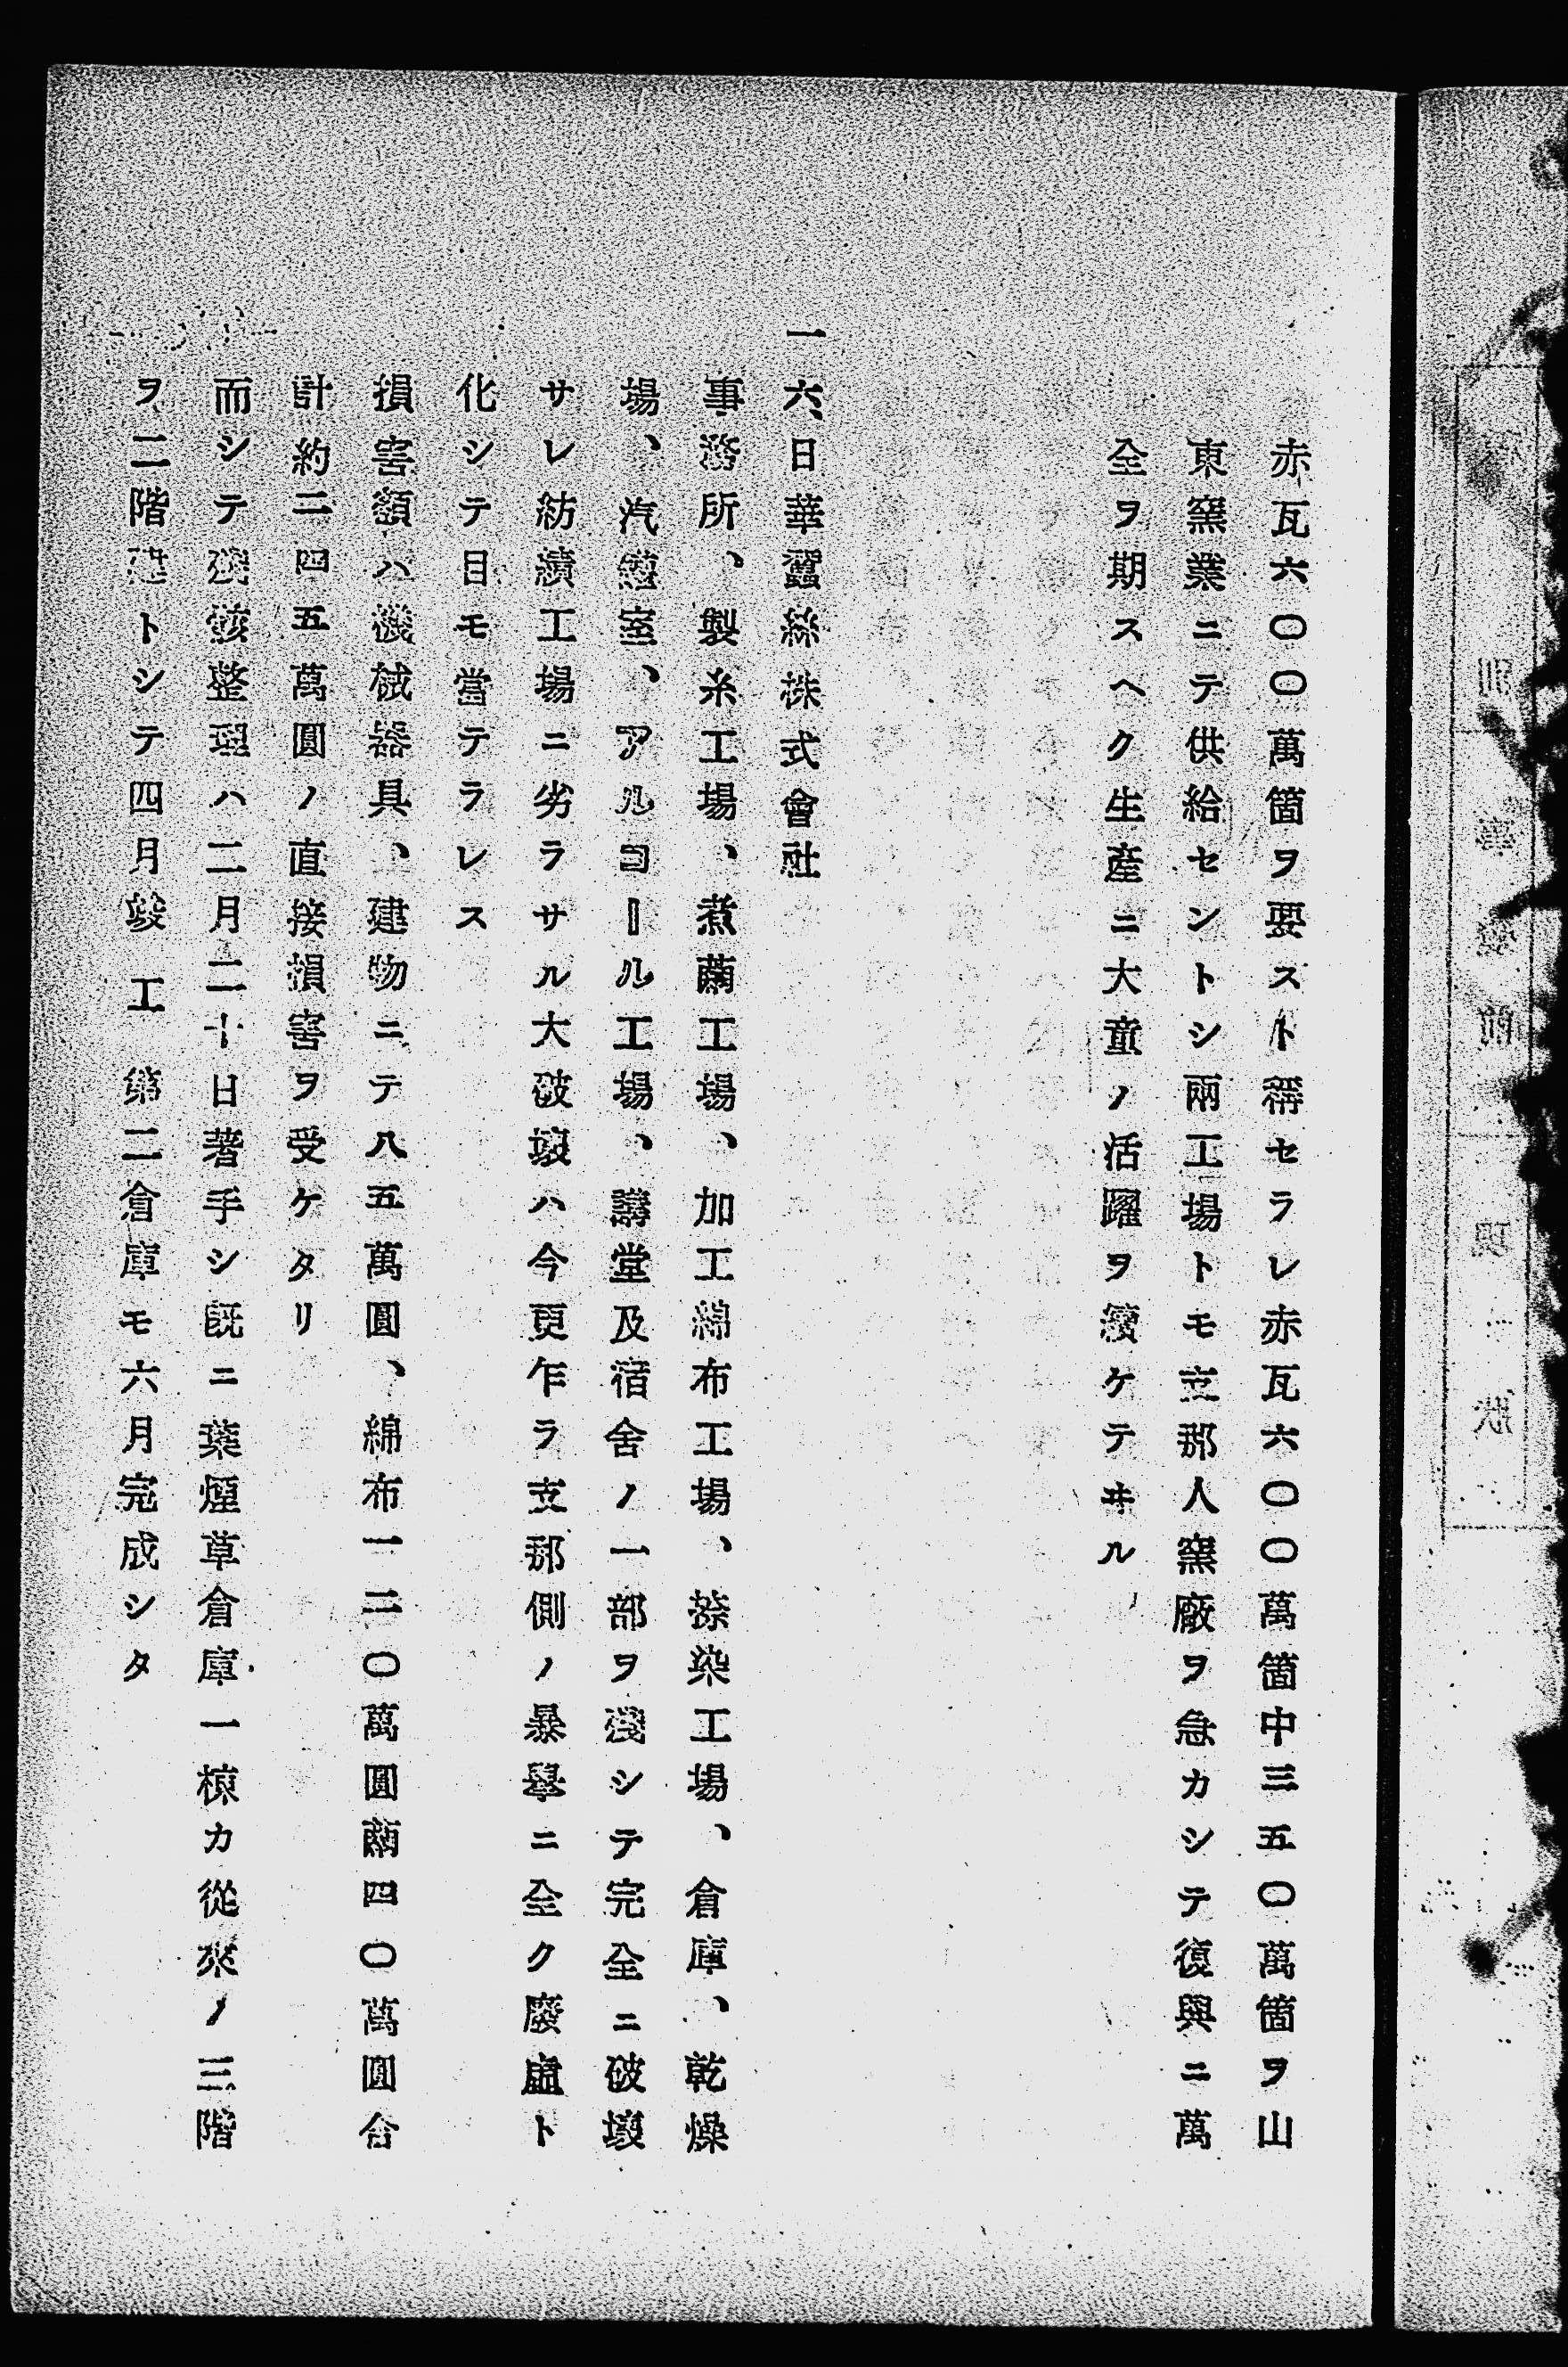 赤瓦六〇〇萬箇ヲ要スト稱セラレ赤瓦六〇〇萬箇中三五〇萬箇ヲ山
東窯業ニテ供給セントシ兩工場トモ支那人窯廠ヲ急カシテ復興ニ萬
全ヲ期スヘク生産ニ大童ノ活躍ヲ續ケテヰル
一六、日華蠶絲株式會社
事務所、製糸工場、煮繭工場、加工綿布工場、捺染工場、倉庫、乾燥
場、汽罐室、アルコール工場、講堂及宿舍ノ一部ヲ殘シテ完全ニ破壞
サレ紡績工場ニ劣ラサル大破壞ハ今更乍ラ支那側ノ暴擧ニ全ク廢墟ト
化シテ目モ當テラレス
損害額ハ機械器具、建物ニテ八五萬圓、綿布一二〇萬圓繭四〇萬圓合
計約二四五萬圓ノ直接損害ヲ受ケタリ
而シテ殘骸整理ハ二月二十日著手シ既ニ葉煙草倉庫一棟カ從來ノ三階
ヲ二階建トシテ四月竣工第二倉庫モ六月完成シタ